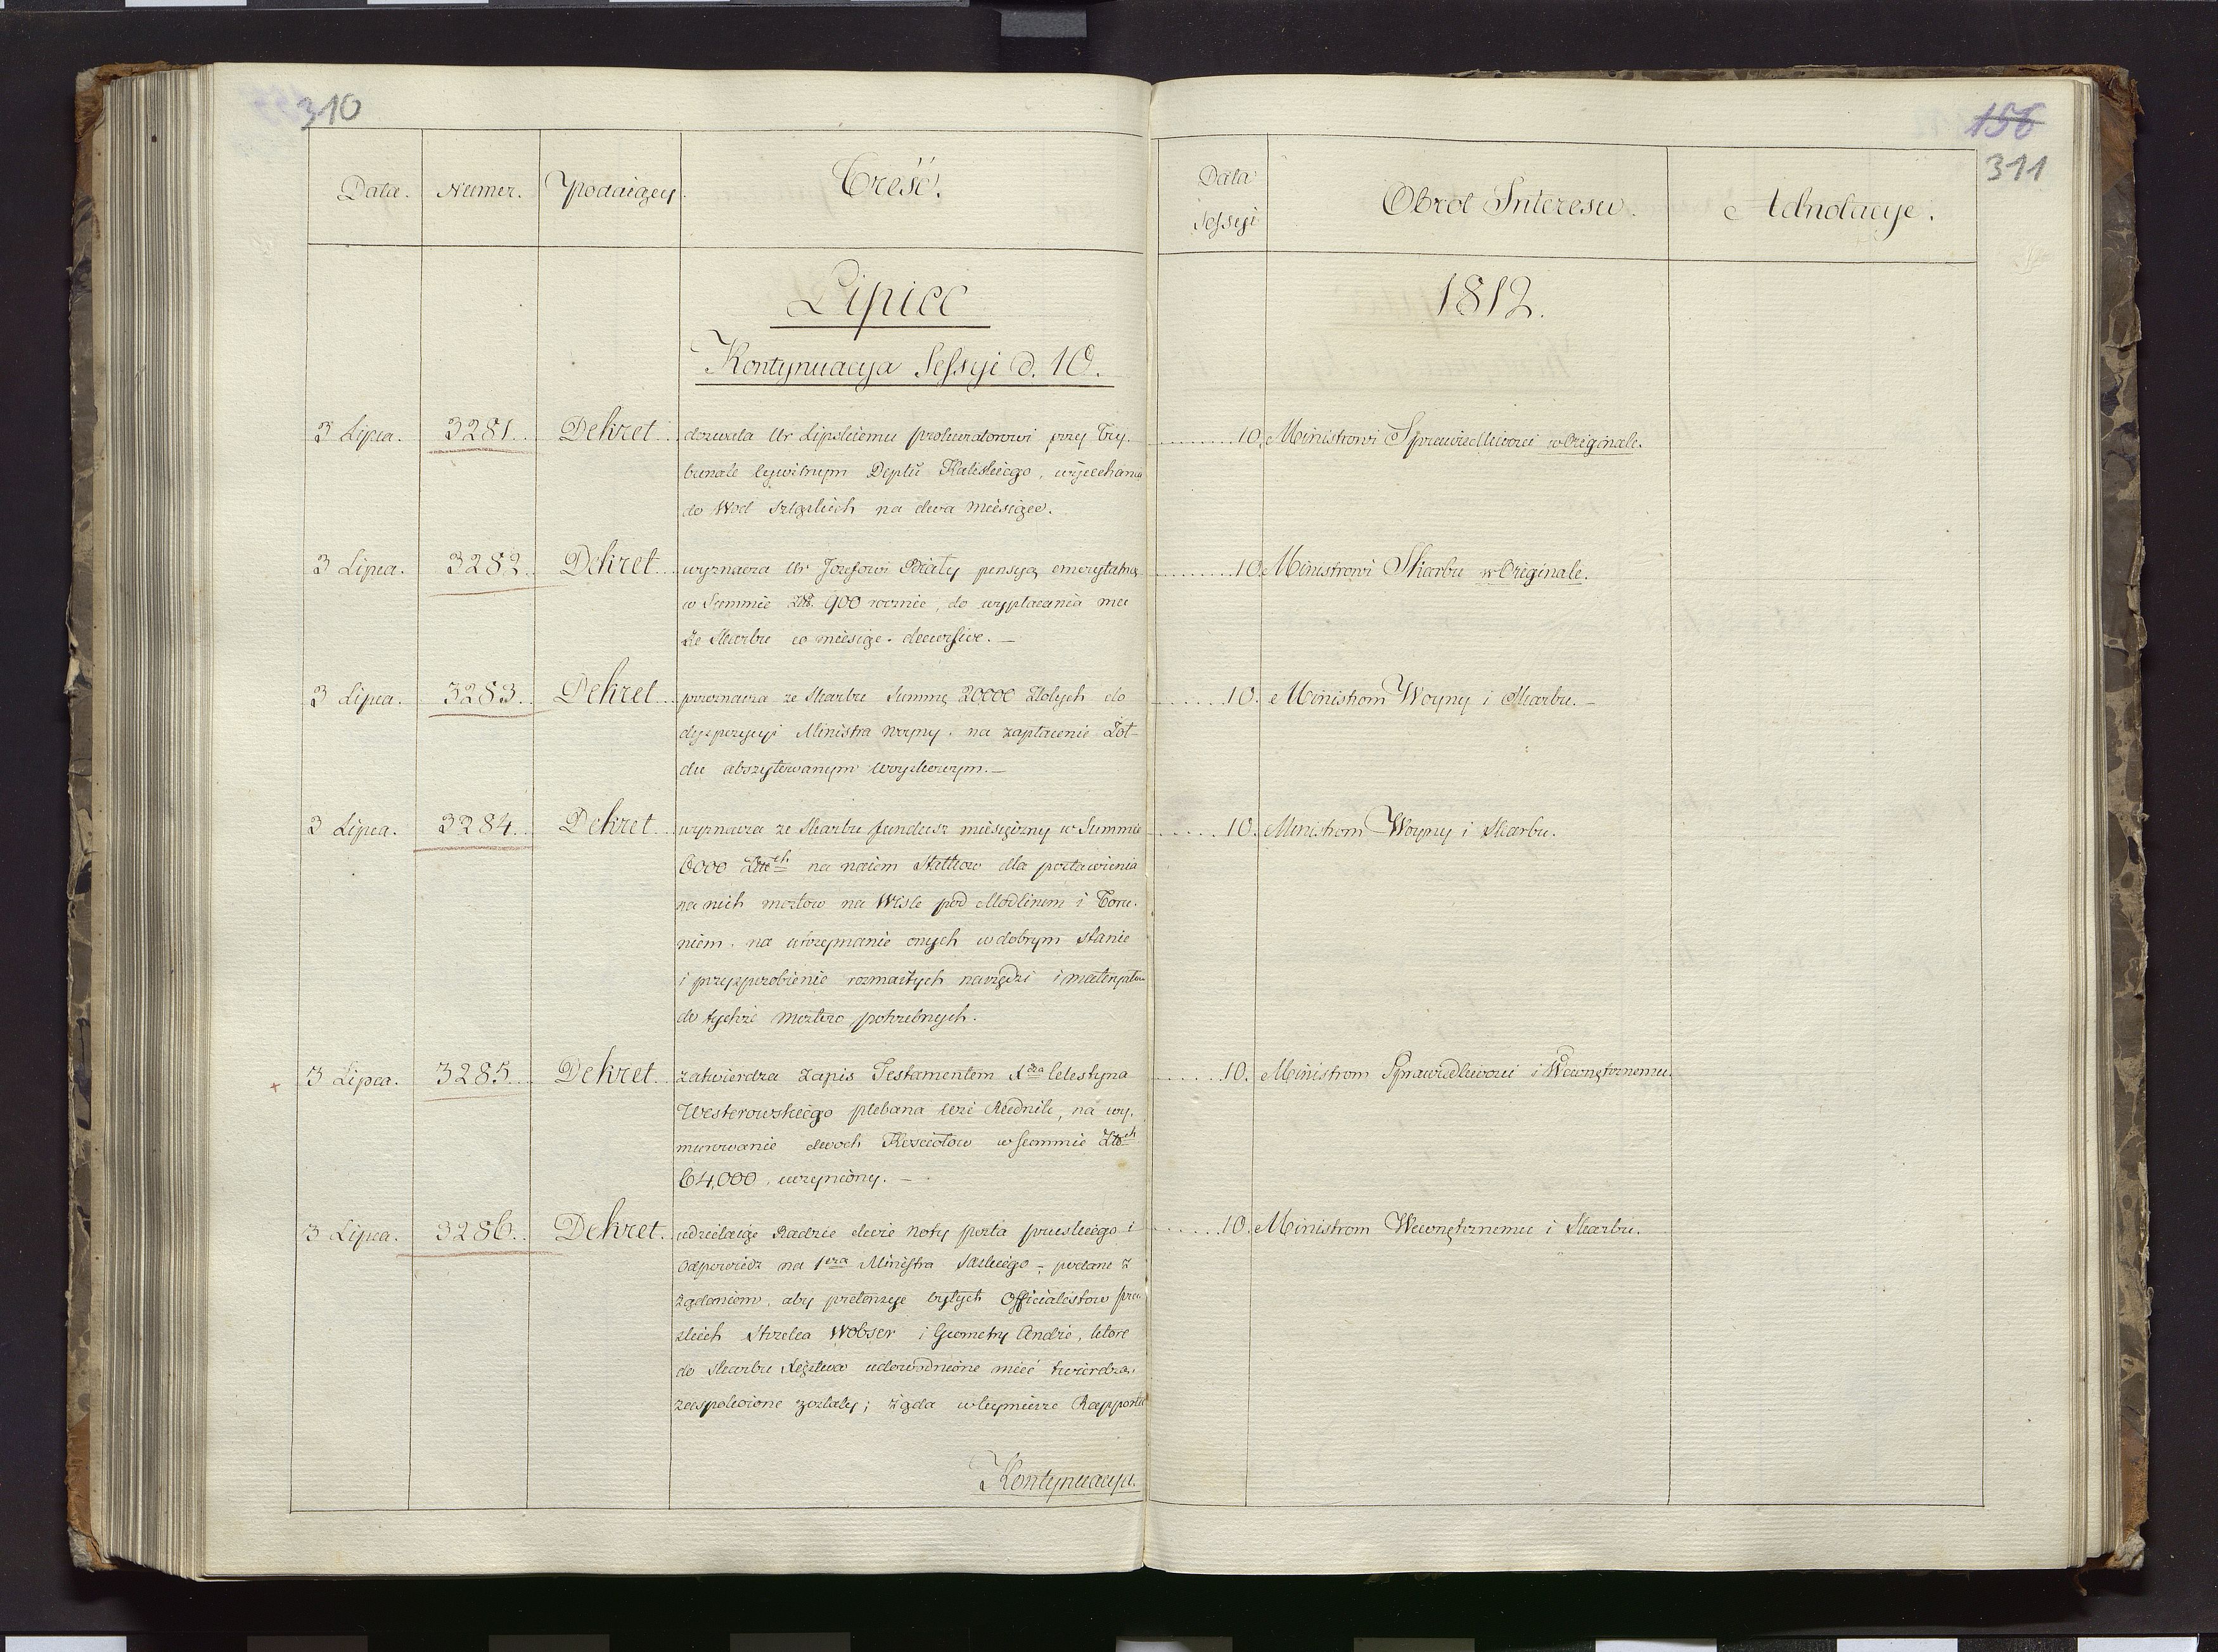 310
156
311
Data. Numer. Podaiący. Treść.
Data Sessyi
Obrot Interesu. Adnotacye.
Lipiec
1812.
Kontynuacya Sessyi d. 10.
3 Lipca. 3281. Dekret dozwala Ur Lipskiemu prokuratorowi przy Try-
bunale Cywilnym Deptu Kaliskiego, wyiechania
do Wod Szląskich na dwa miesiące.
10. Ministrowi Sprawiedliwości w Originale.
3 Lipca. 3282. Dekret wyznacza Ur Jozefowi pensyą emerytalną
w Summie Złł. 900 rocznie, do wypłacania mu
ze Skarbu co miesiąc decursive. —
10. Ministrowi Skarbu w Originale.
3 Lipca. 3283. Dekret przeznacza ze Skarbu Summę 20000 Złotych do
dyspozycyi Ministra Woyny, na zapłacenie Żoł-
du abszytowanym woyskowym. —
10. Ministrom Woyny i Skarbu. —
3 Lipca. 3284. Dekret wyznacza ze Skarbu fundusz miesięczny w Summie
6000 Złłch na naiem Statkow dla postawienia
na nich mostow na Wisle pod Modlinem i Toru-
niem, na utrzymanie onych w dobrym stanie
i przysposobienie rozmaitych narzędzi i materyałow
do tychże mostow potrzebnych.
10. Ministrom Woyny i Skarbu.
3 Lipca. 3285. Dekret zatwierdza zapis Testamentem Xdza Celestyna
Westerowskiego plebana wsi Rudnik, na wy-
murowanie dwoch Kosciołow w Summie Złłch
64,000, uczyniony. —
10. Ministrom Sprawiedliwości i Wewnętrznemu.
3 Lipca. 3286. Dekret. udzielaiąc Radzie dwie Noty posła pruskiego i
odpowiedz na 1szą Ministra Saskiego — podane z
żądaniem, aby pretensye byłych Officialistow pru-
skich Strzelca Wobser i Geometry Andrie, ktore
do Skarbu Xięstwa udowodnione mieć twierdzą,
zaspokoione zostały; żąda w tey mierze Rapportu
10. Ministrom Wewnętrznemu i Skarbu.
Kontynuacya.